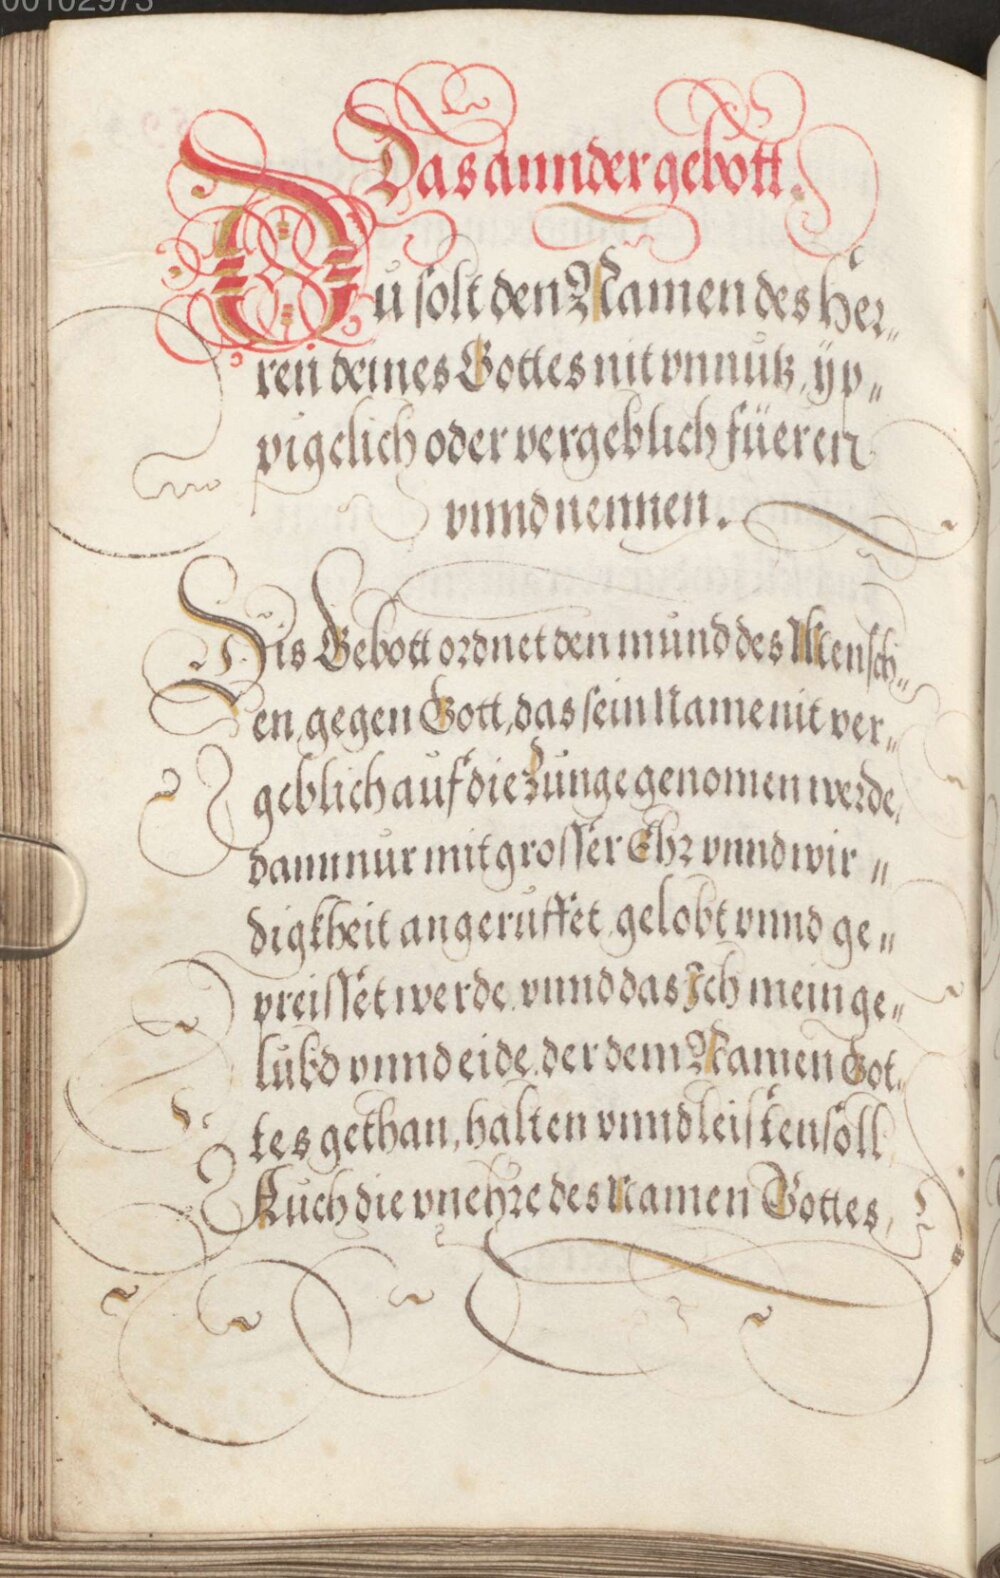 00102973
Das annder gebott.
Du solt den Namen des Her„
ren deines Gottes nit vnnutz, yp„
pigelich oder vergeblich füeren
vnnd nennen.
Dis Gebott ordnet den mund des Mensch„
en, gegen Gott, das sein Name nit ver„
geblich auf die Zunge genomen werde,
dann nur mit grosser Ehr vnnd wir„
digkheit angeruffet, gelobt vnnd ge„
preisset werde, vnnd das Ich mein ge„
lübd vnnd eide, der dem Namen Got„
tes gethan, halten vnnd leisten soll
Auch die vnehre des Namen Gottes,